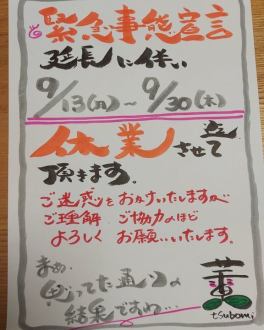 緊急事態宣言
延長に伴い
9/13(月)～9/30(木)
休業させて
頂きます。
ご迷惑をおかけいたしますが
ご理解 ご協力のほど
よろしく お願いいたします。
まぁ、
思ってた通りの
結果ですわ…
tsubomi